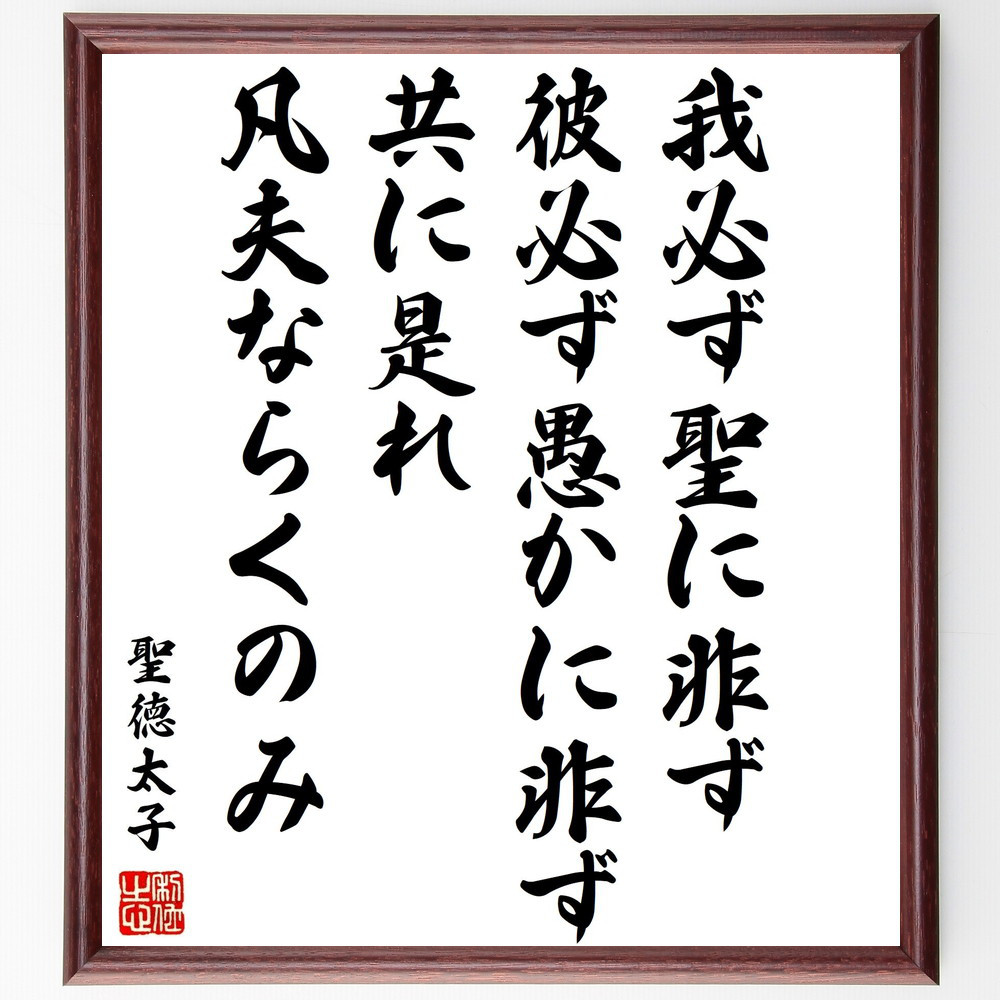 我必ず聖に非ず
彼必ず愚かに非ず
共に是れ
凡夫ならくのみ
聖徳太子